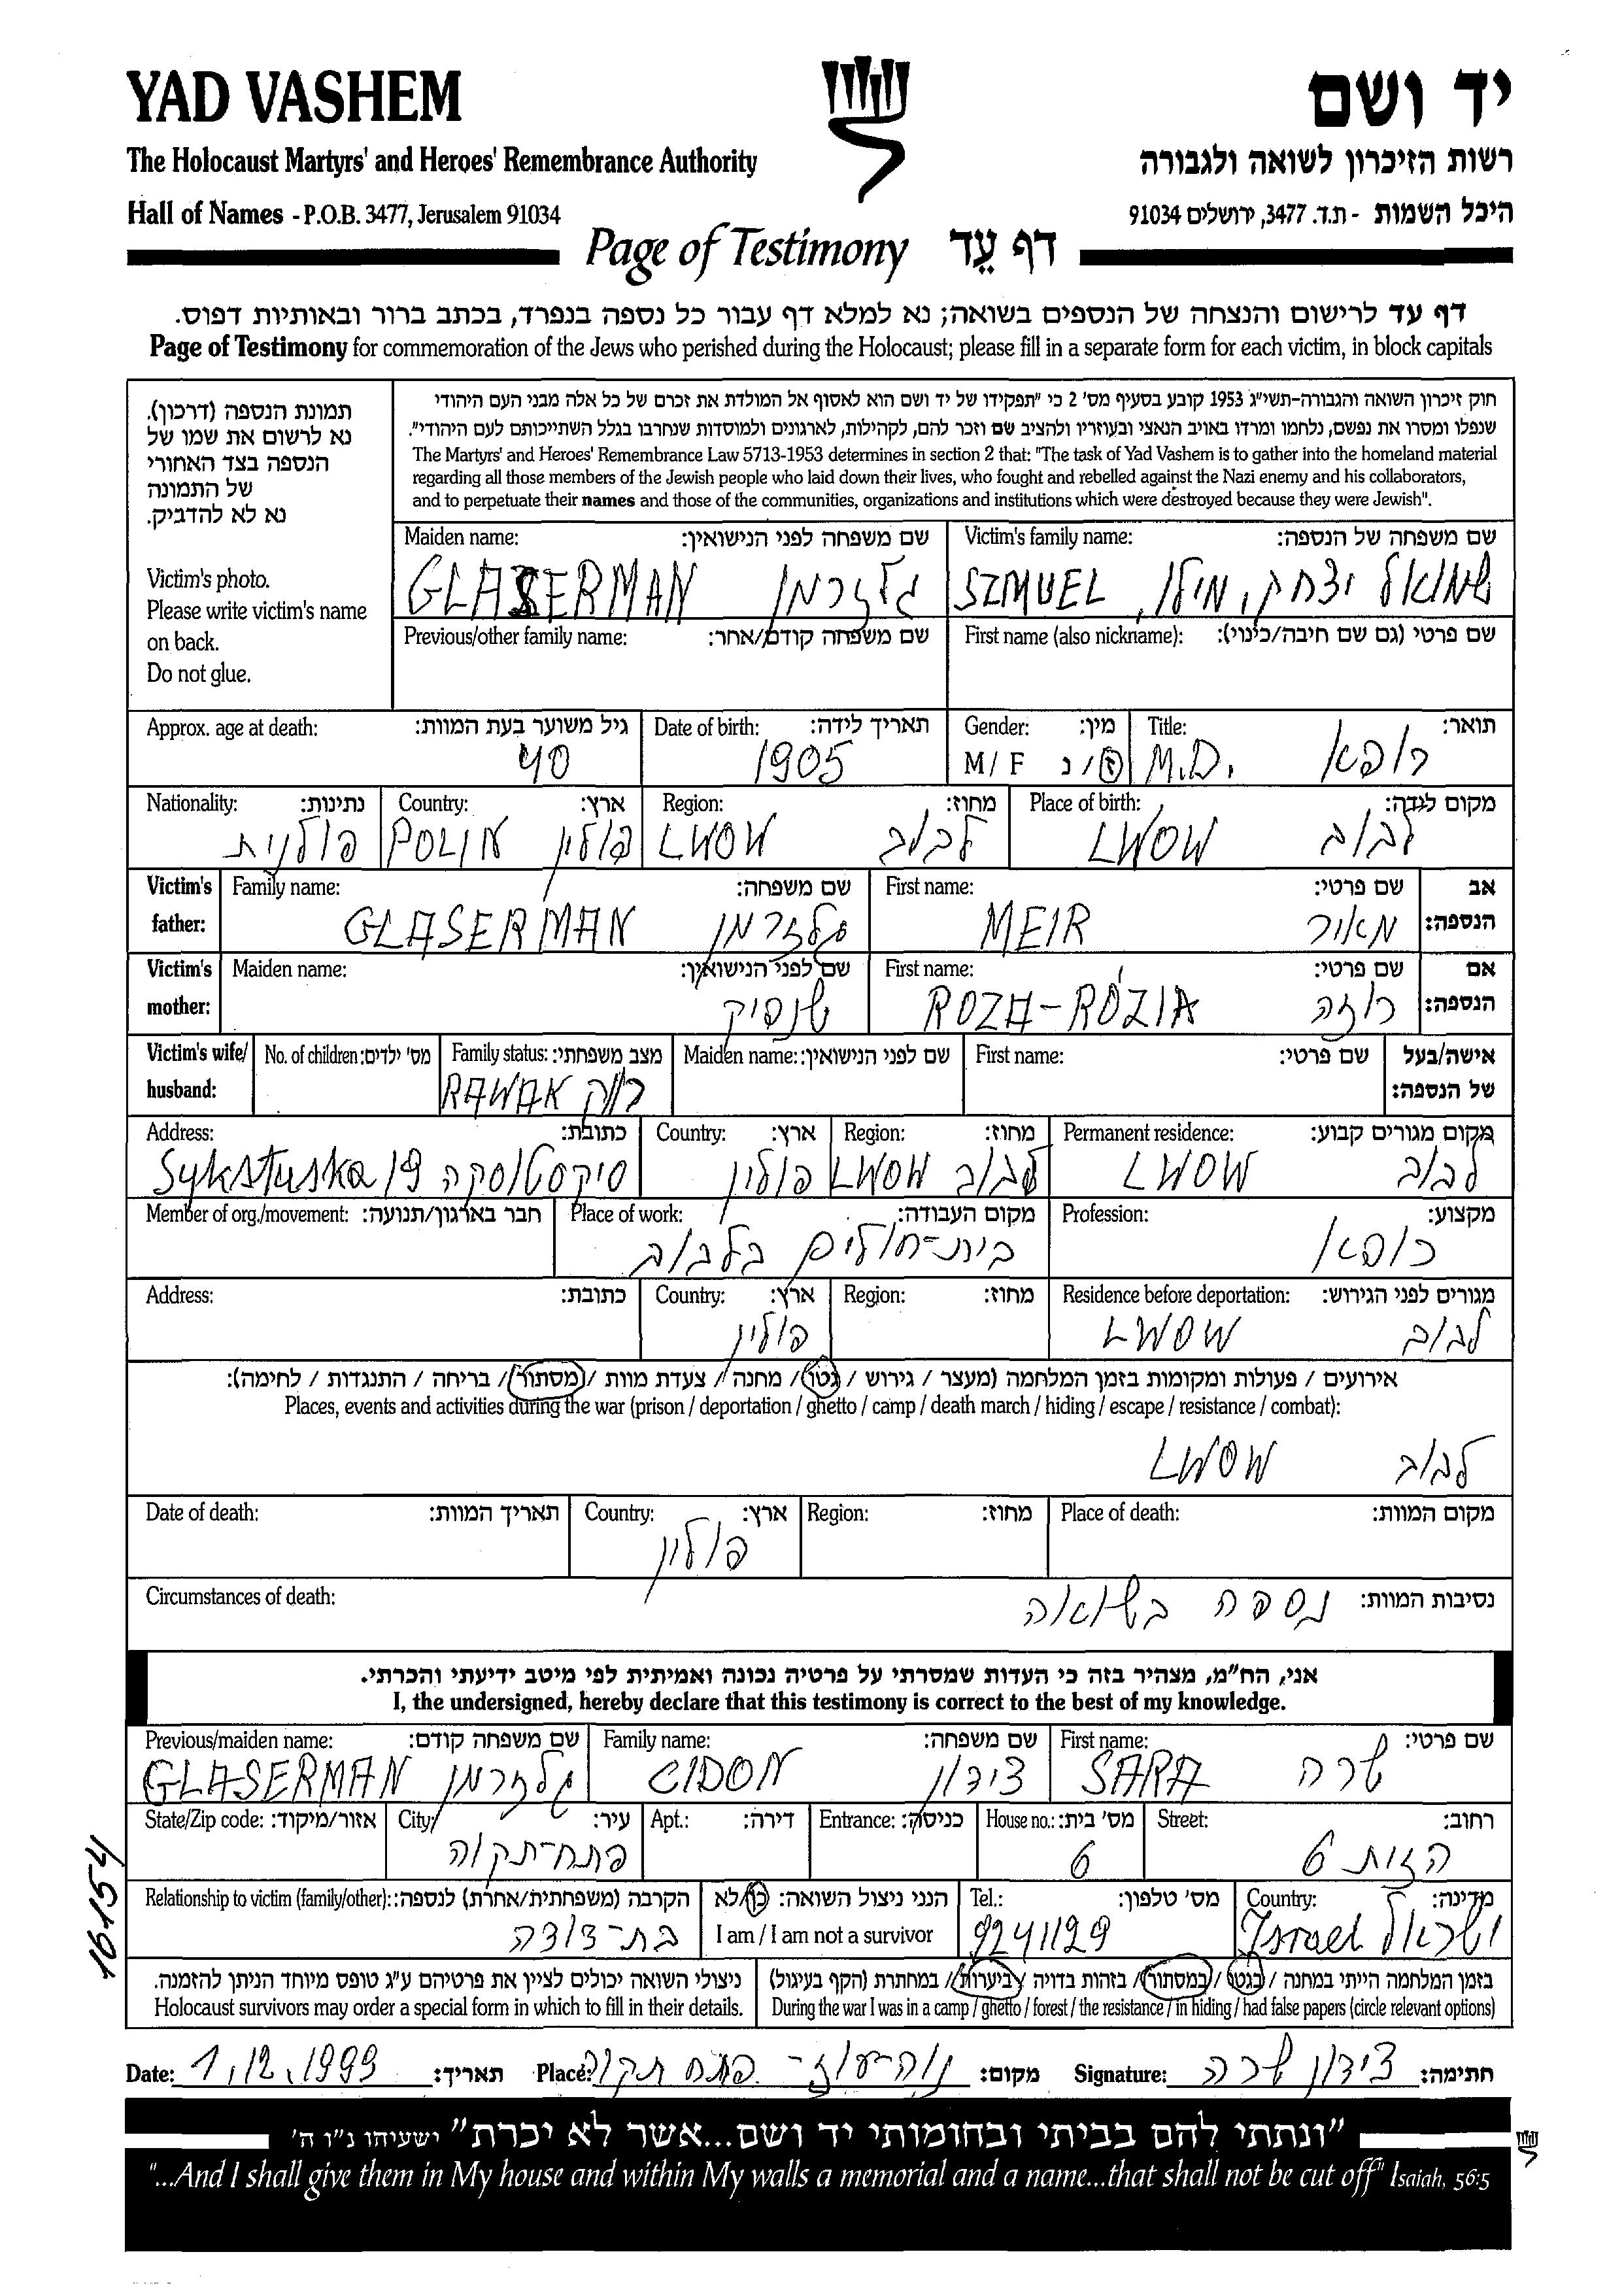 YAD VASHEM
יד ושם
The Holocaust Martyrs' and Heroes' Remembrance Authority
רשות הזיכרון לשואה ולגבורה
Hall of Names - P.O.B. 3477, Jerusalem 91034
היכל השמות - ת.ד. 3477, ירושלים 91034
Page of Testimony דף עֵד
דף עד לרישום והנצחה של הנספים בשואה; נא למלא דף עבור כל נספה בנפרד, בכתב ברור ובאותיות דפוס.
Page of Testimony for commemoration of the Jews who perished during the Holocaust; please fill in a separate form for each victim, in block capitals
תמונת הנספה (דרכון).
נא לרשום את שמו של
הנספה בצד האחורי
של התמונה
נא לא להדביק.
Victim's photo.
Please write victim's name
on back.
Do not glue.
חוק זיכרון השואה והגבורה-תשי"ג 1953 קובע בסעיף מס' 2 כי "תפקידו של יד ושם הוא לאסוף אל המולדת את זכרם של כל אלה מבני העם היהודי
שנפלו ומסרו את נפשם, נלחמו ומרדו באויב הנאצי ובעוזריו ולהציב שם וזכר להם, לקהילות, לארגונים ולמוסדות שנחרבו בגלל השתייכותם לעם היהודי".
The Martyrs' and Heroes' Remembrance Law 5713-1953 determines in section 2 that: "The task of Yad Vashem is to gather into the homeland material
regarding all those members of the Jewish people who laid down their lives, who fought and rebelled against the Nazi enemy and his collaborators,
and to perpetuate their names and those of the communities, organizations and institutions which were destroyed because they were Jewish".
Maiden name: שם משפחה לפני הנישואין: Victim's family name: שם משפחה של הנספה:
GLASERMAN גלזרמן SZMUEL שמואל יצחק, מילו,
Previous/other family name: שם משפחה קודם/אחר: First name (also nickname): שם פרטי (גם שם חיבה/כינוי):
Approx. age at death: גיל משוער בעת המוות: Date of birth: תאריך לידה: Gender: מין: Title: תואר:
40 1905 M / F ז / נ M.D. רופא
Nationality: נתינות: Country: ארץ: Region: מחוז: Place of birth: מקום לידה:
פולנית POLIN פולין LWOW לבוב LWOW לבוב
Victim's father: Family name: שם משפחה: First name: שם פרטי: אב הנספה:
GLASERMAN גלזרמן MEIR מאיר
Victim's mother: Maiden name: שם לפני הנישואין: First name: שם פרטי: אם הנספה:
ROZA-RÓZIA רוזה
Victim's wife/ husband: No. of children: מס' ילדים: Family status: מצב משפחתי: Maiden name: שם לפני הנישואין: First name: שם פרטי: אישה/בעל של הנספה:
RAWAK רווק
Address: כתובת: Country: ארץ: Region: מחוז: Permanent residence: מקום מגורים קבוע:
Sykstuska 19 סיקסטוסקה פולין LWOW לבוב LWOW לבוב
Member of org./movement: חבר בארגון/תנועה: Place of work: מקום העבודה: Profession: מקצוע:
בית-חולים בלבוב רופא
Address: כתובת: Country: ארץ: Region: מחוז: Residence before deportation: מגורים לפני הגירוש:
פולין LWOW לבוב
אירועים / פעולות ומקומות בזמן המלחמה (מעצר / גירוש / גטו / מחנה / צעדת מוות / מסתור / בריחה / התנגדות / לחימה):
Places, events and activities during the war (prison / deportation / ghetto / camp / death march / hiding / escape / resistance / combat):
LWOW לבוב
Date of death: תאריך המוות: Country: ארץ: Region: מחוז: Place of death: מקום המוות:
פולין
Circumstances of death: נסיבות המוות: נספה בשואה
אני, הח"מ, מצהיר בזה כי העדות שמסרתי על פרטיה נכונה ואמיתית לפי מיטב ידיעתי והכרתי.
I, the undersigned, hereby declare that this testimony is correct to the best of my knowledge.
Previous/maiden name: שם משפחה קודם: Family name: שם משפחה: First name: שם פרטי:
GLASERMAN גלזרמן CIDON צידון SARA שרה
State/Zip code: אזור/מיקוד: City: עיר: Apt.: דירה: Entrance: כניסה: House no.: מס' בית: Street: רחוב:
פתח-תקוה 6 הזית 6
Relationship to victim (family/other): הקרבה (משפחתית/אחרת) לנספה: הנני ניצול השואה: כן/לא Tel.: מס' טלפון: Country: מדינה:
בת-דודה I am / I am not a survivor 9241129 Israel ישראל
ניצולי השואה יכולים לציין את פרטיהם ע"ג טופס מיוחד הניתן להזמנה. בזמן המלחמה הייתי במחנה / בגטו / במסתור / בזהות בדויה / ביערות / במחתרת (הקף בעיגול)
Holocaust survivors may order a special form in which to fill in their details. During the war I was in a camp / ghetto / forest / the resistance / in hiding / had false papers (circle relevant options)
16154
Date: 1.12.1999 תאריך: Place: נוה-עוז- פתח תקוה מקום: Signature: צידון שרה חתימה:
"ונתתי להם בביתי ובחומותי יד ושם...אשר לא יכרת" ישעיהו נ"ו ה'
"...And I shall give them in My house and within My walls a memorial and a name...that shall not be cut off" Isaiah, 56:5